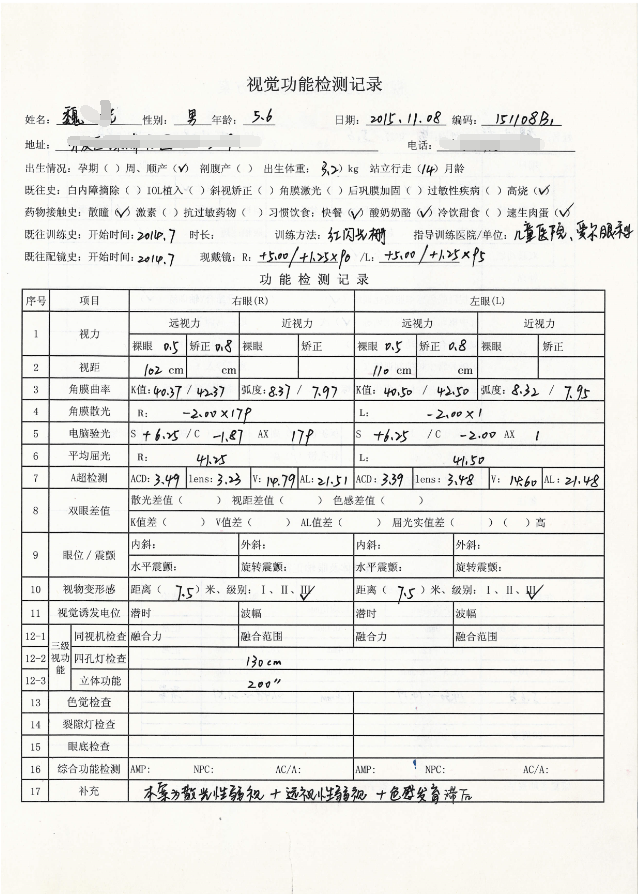 视觉功能检测记录
姓名: 魏 性别: 男 年龄: 5.6 日期: 2015.11.08 编码: 151108B1
地址: 电话:
出生情况: 孕期( )周、顺产(✓) 剖腹产( ) 出生体重: 3.2)kg 站立行走(14)月龄
既往史: 白内障摘除( )IOL植入( )斜视矫正( )角膜激光( )后巩膜加固( )过敏性疾病( )高烧(✓)
药物接触史: 散瞳(✓)激素( )抗过敏药物( )习惯饮食: 快餐(✓)酸奶奶酪(✓)冷饮甜食(✓)速生肉蛋(✓)
既往训练史: 开始时间: 2014.7 时长: 训练方法: 红闪光栅 指导训练医院/单位: 儿童医院、爱尔眼科
既往配镜史: 开始时间: 2014.7 现戴镜: R: +5.00/+1.25×90 /L: +5.00/+1.25×95
功能检测记录
序号 项目 右眼(R) 左眼(L)
1 视力 远视力 近视力 远视力 近视力
裸眼 0.5 矫正 0.8 裸眼 矫正 裸眼 0.5 矫正 0.8 裸眼 矫正
2 视距 102 cm cm 110 cm cm
3 角膜曲率 K值: 40.37 / 42.37 弧度: 8.37 / 7.97 K值: 40.50 / 42.50 弧度: 8.32 / 7.95
4 角膜散光 R: -2.00×179 L: -2.00×1
5 电脑验光 S +6.25 /C -1.87 AX 179 S +6.25 /C -2.00 AX 1
6 平均屈光 R: 41.25 L: 41.50
7 A超检测 ACD: 3.49 lens: 3.23 V: 14.79 AL: 21.51 ACD: 3.39 lens: 3.48 V: 14.60 AL: 21.48
8 双眼差值 散光差值( ) 视距差值( ) 色感差值( )
K值差( ) V值差( ) AL值差( ) 屈光实值差( )( )高
9 眼位/震颤 内斜: 外斜: 内斜: 外斜:
水平震颤: 旋转震颤: 水平震颤: 旋转震颤:
10 视物变形感 距离(7.5)米、级别: I、II、III✓ 距离(7.5)米、级别: I、II、III✓
11 视觉诱发电位 潜时 波幅 潜时 波幅
12-1 三级视功能 同视机检查 融合力 融合范围 融合力 融合范围
12-2 四孔灯检查 130cm
12-3 立体功能 200"
13 色觉检查
14 裂隙灯检查
15 眼底检查
16 综合功能检测 AMP: NPC: AC/A: AMP: NPC: AC/A:
17 补充 本案为散光性弱视+远视性弱视+色感发育滞后